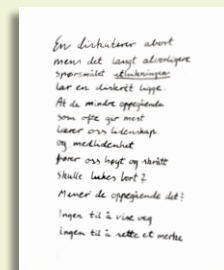 En diskuterer abort
mens det langt alvorligere
spørsmålet utlukningen
lar en diskrét ligge.
At de mindre oppegående
som ofte gir mest
lærer oss lidenskap
og medlidenhet
fører oss høyt og skrått
skulle lukes bort?
Mener de oppegående det?
Ingen til å vise veg
ingen til å sette et merke